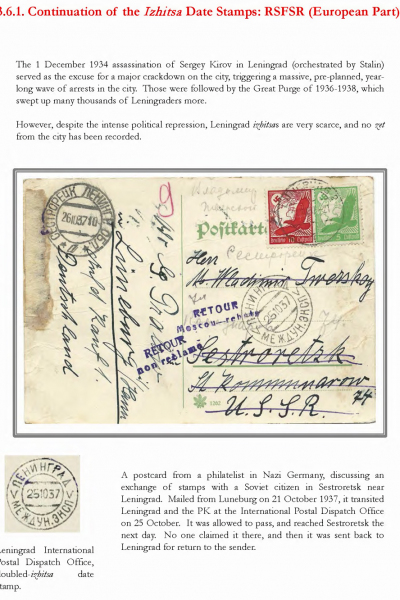 3.6.1. Continuation of the Izhitsa Date Stamps: RSFSR (European Part)
The 1 December 1934 assassination of Sergey Kirov in Leningrad (orchestrated by Stalin)
served as the excuse for a major crackdown on the city, triggering a massive, pre-planned, year-
long wave of arrests in the city. Those were followed by the Great Purge of 1936-1938, which
swept up many thousands of Leningraders more.
However, despite the intense political repression, Leningrad izhitsas are very scarce, and no zet
from the city has been recorded.
Postkarte
Herrn
Wladimir Twerskoy
ЛЕНИНГРАД
251037
МЕЖДУН.ЭКСП.
RETOUR
Moscou-rebuts
RETOUR
non réclamé
Sestroretzk
St. Kommunarow
74
U.S.S.R.
Lüneburg
Deutschland
ЛЕНИНГРАД
251037
МЕЖДУН.ЭКСП.
Leningrad International
Postal Dispatch Office,
doubled-izhitsa date
stamp.
A postcard from a philatelist in Nazi Germany, discussing an
exchange of stamps with a Soviet citizen in Sestroretsk near
Leningrad. Mailed from Luneburg on 21 October 1937, it transited
Leningrad and the PK at the International Postal Dispatch Office
on 25 October. It was allowed to pass, and reached Sestroretsk the
next day. No one claimed it there, and then it was sent back to
Leningrad for return to the sender.